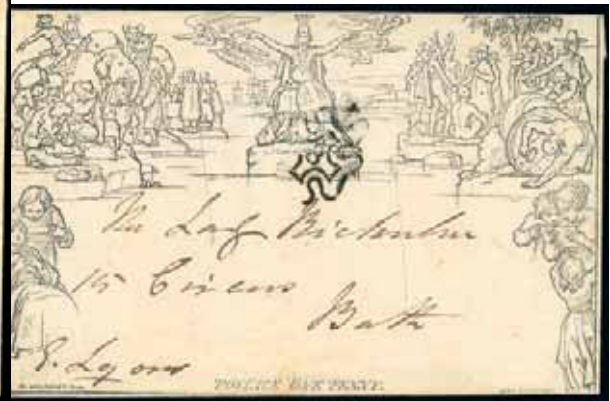 The Lady Bickerton
15 Circus
Bath
E. Lyons
POSTAGE ONE PENNY.